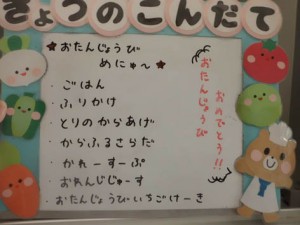 きょうのこんだて
★おたんじょうび★
めにゅ〜
・ごはん
・ふりかけ
・とりのからあげ
・からふるさらだ
・かれーすーぷ
・おれんじじゅーす
・おたんじょうびいちごけーき
おたんじょうび
おめでとう!!